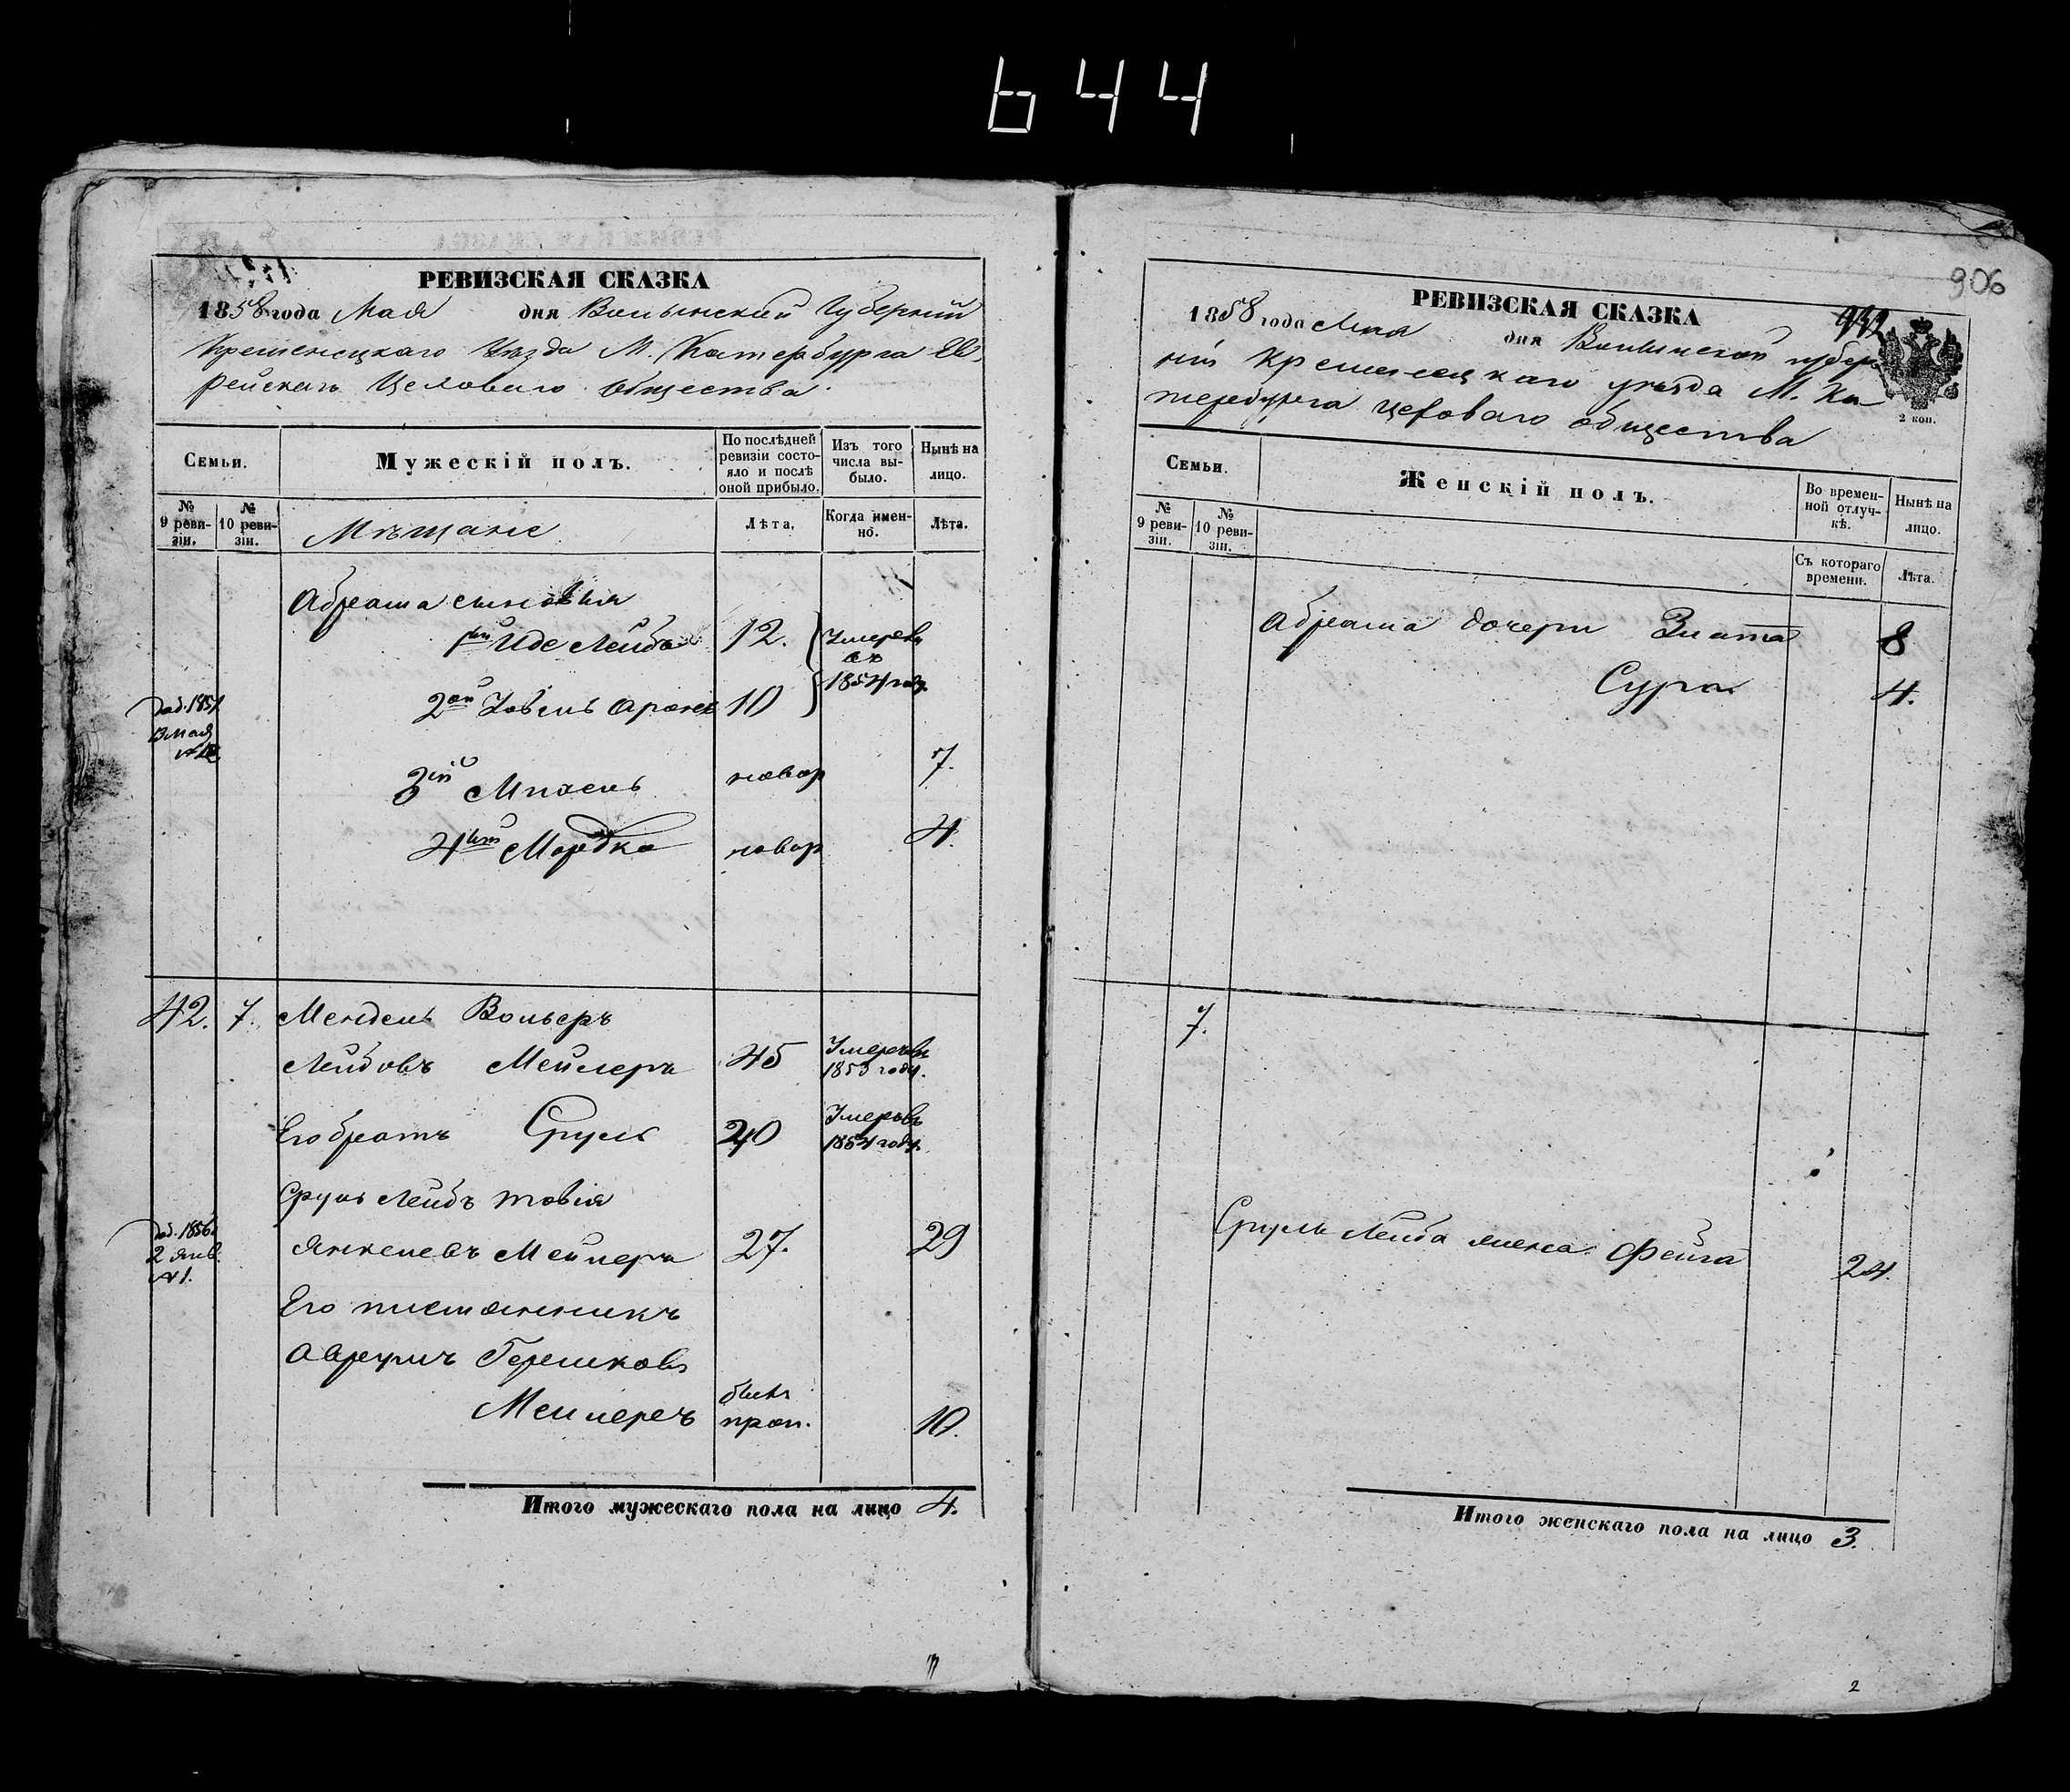 644
906
РЕВИЗСКАЯ СКАЗКА
1858 года Мая дня Волынской Губерніи
Кременецкаго Уѣзда М. Катербурга Ев
рейскаго Цеховаго общества
Семьи.
Мужескій полъ.
По послѣдней ревизіи состояло и послѣ оной прибыло.
Изъ того числа выбыло.
Нынѣ на лицо.
№ 9 ревизіи.
№ 10 ревизіи.
Мѣщане
Лѣта.
Когда именно.
Лѣта.
Абрама сыновья
1ый Иде Лейба 12. Умерли
въ
1854 году.
доб. 1857
13 мая
2ой Іовель Аронъ 10
3ій Михель новор 7.
4тый Мордко новор 4.
42. 7. Мендель Вольеръ
Лейбовъ Мейлеръ 45 Умеръ въ
1853 году.
Его братъ Сруль 20 Умеръ въ
1854 году.
Сруль Лейбъ Товія
доб. 1856
2 Янв.
№ 1.
Янкелевъ Мейлеръ 27. 29
Его племянникъ
Аврумъ Гершковъ
Мейлеръ былъ
проп. 10.
Итого мужескаго пола на лицо 4.
РЕВИЗСКАЯ СКАЗКА
1858 года Мая дня Волынской губер
ніи Кременецкаго уѣзда М. Ка
тербурга цеховаго общества
2 коп.
Семьи.
Женскій полъ.
Во временной отлучкѣ.
Нынѣ на лицо.
№ 9 ревизіи.
№ 10 ревизіи.
Съ котораго времени.
Лѣта.
Абрама дочери Злата 8
Сура 4.
7.
Сруль Лейба жена Фейга 24.
Итого женскаго пола на лицо 3.
2